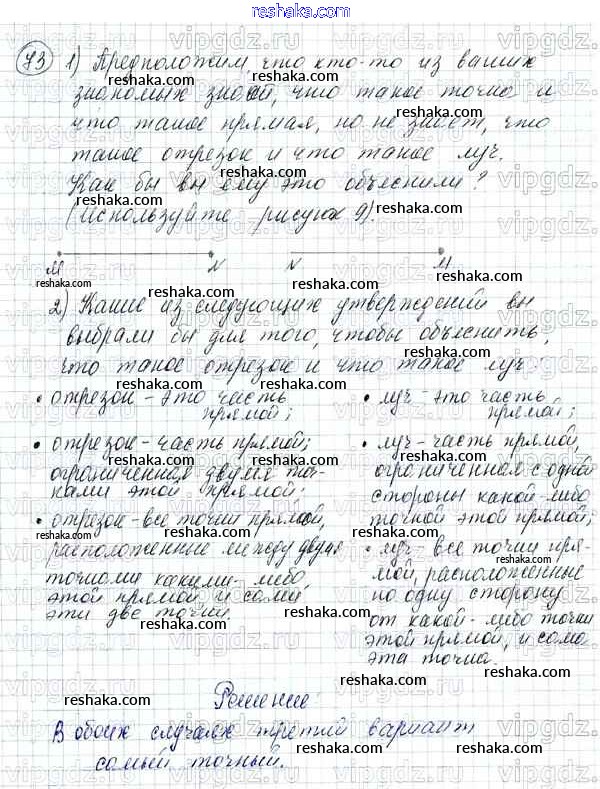 reshaka.com
73 1) Предположим, что кто-то из ваших
знакомых знает, что такое точка и
что такое прямая, но не знает, что
такое отрезок и что такое луч.
Как бы вы ему это объяснили?
(Используйте рисунок 9).
M N N M
2) Какие из следующих утверждений вы
выбрали бы для того, чтобы объяснить,
что такое отрезок и что такое луч:
• отрезок - это часть
прямой;
• отрезок - часть прямой,
ограниченная двумя точ-
ками этой прямой;
• отрезок - все точки прямой,
расположенные между двумя
точками какими-либо
этой прямой и сами
эти две точки.
• луч - это часть
прямой;
• луч - часть прямой,
ограниченная с одной
стороны какой-либо
точкой этой прямой;
• луч - все точки пря-
мой, расположенные
по одну сторону
от какой-либо точки
этой прямой, и сама
эта точка.
Решение
В обоих случаях третий вариант
самый точный.
reshaka.com